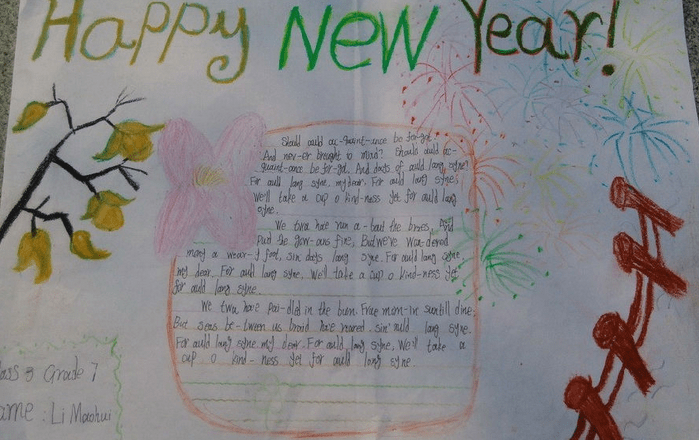 Happy New Year!
Should auld ac-quaint-ance be for-got
And nev-er brought to mind? Should auld ac-
quaint-ance be for-got. And days of auld lang syne?
For auld lang syne. my dear. For auld lang syne.
We'll take a cup o kind-ness yet for auld lang
syne.
We twa have run a-bout the braes, And
the gow-ans fine, But we've wan-dered
many a wear-y foot, sin days lang syne. For auld lang syne.
my dear. For auld lang syne. We'll take a cup o kind-ness yet
for auld lang syne.
We twa have pai-dled in the burn. Frae morn-in sun till dine.
But seas be-tween us braid have roared sin' auld lang syne.
For auld lang syne. my dear. For auld lang syne. We'll take a
cup o kind-ness yet for auld lang syne.
ass 3 Grade 7
ame: Li Maohui